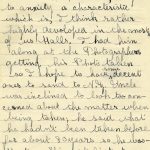 to anxiety a characteristic
which is, I think rather
highly developed in the
of us Halls, I had him
along at the Photographers
getting his Photo taken
so I hope to have decent
ones to send to N.Y. Uncle
was inclined to look
about the matter when
being taken, he said what
he hadn't been taken before
for about 30 years so he was